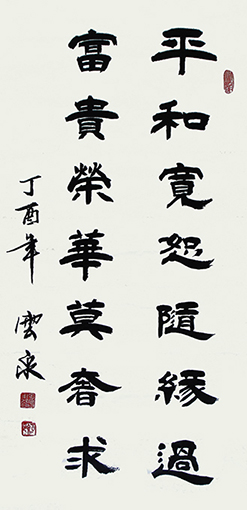 平和寬恕隨緣過
富貴榮華莫奢求
丁酉年 雲泉